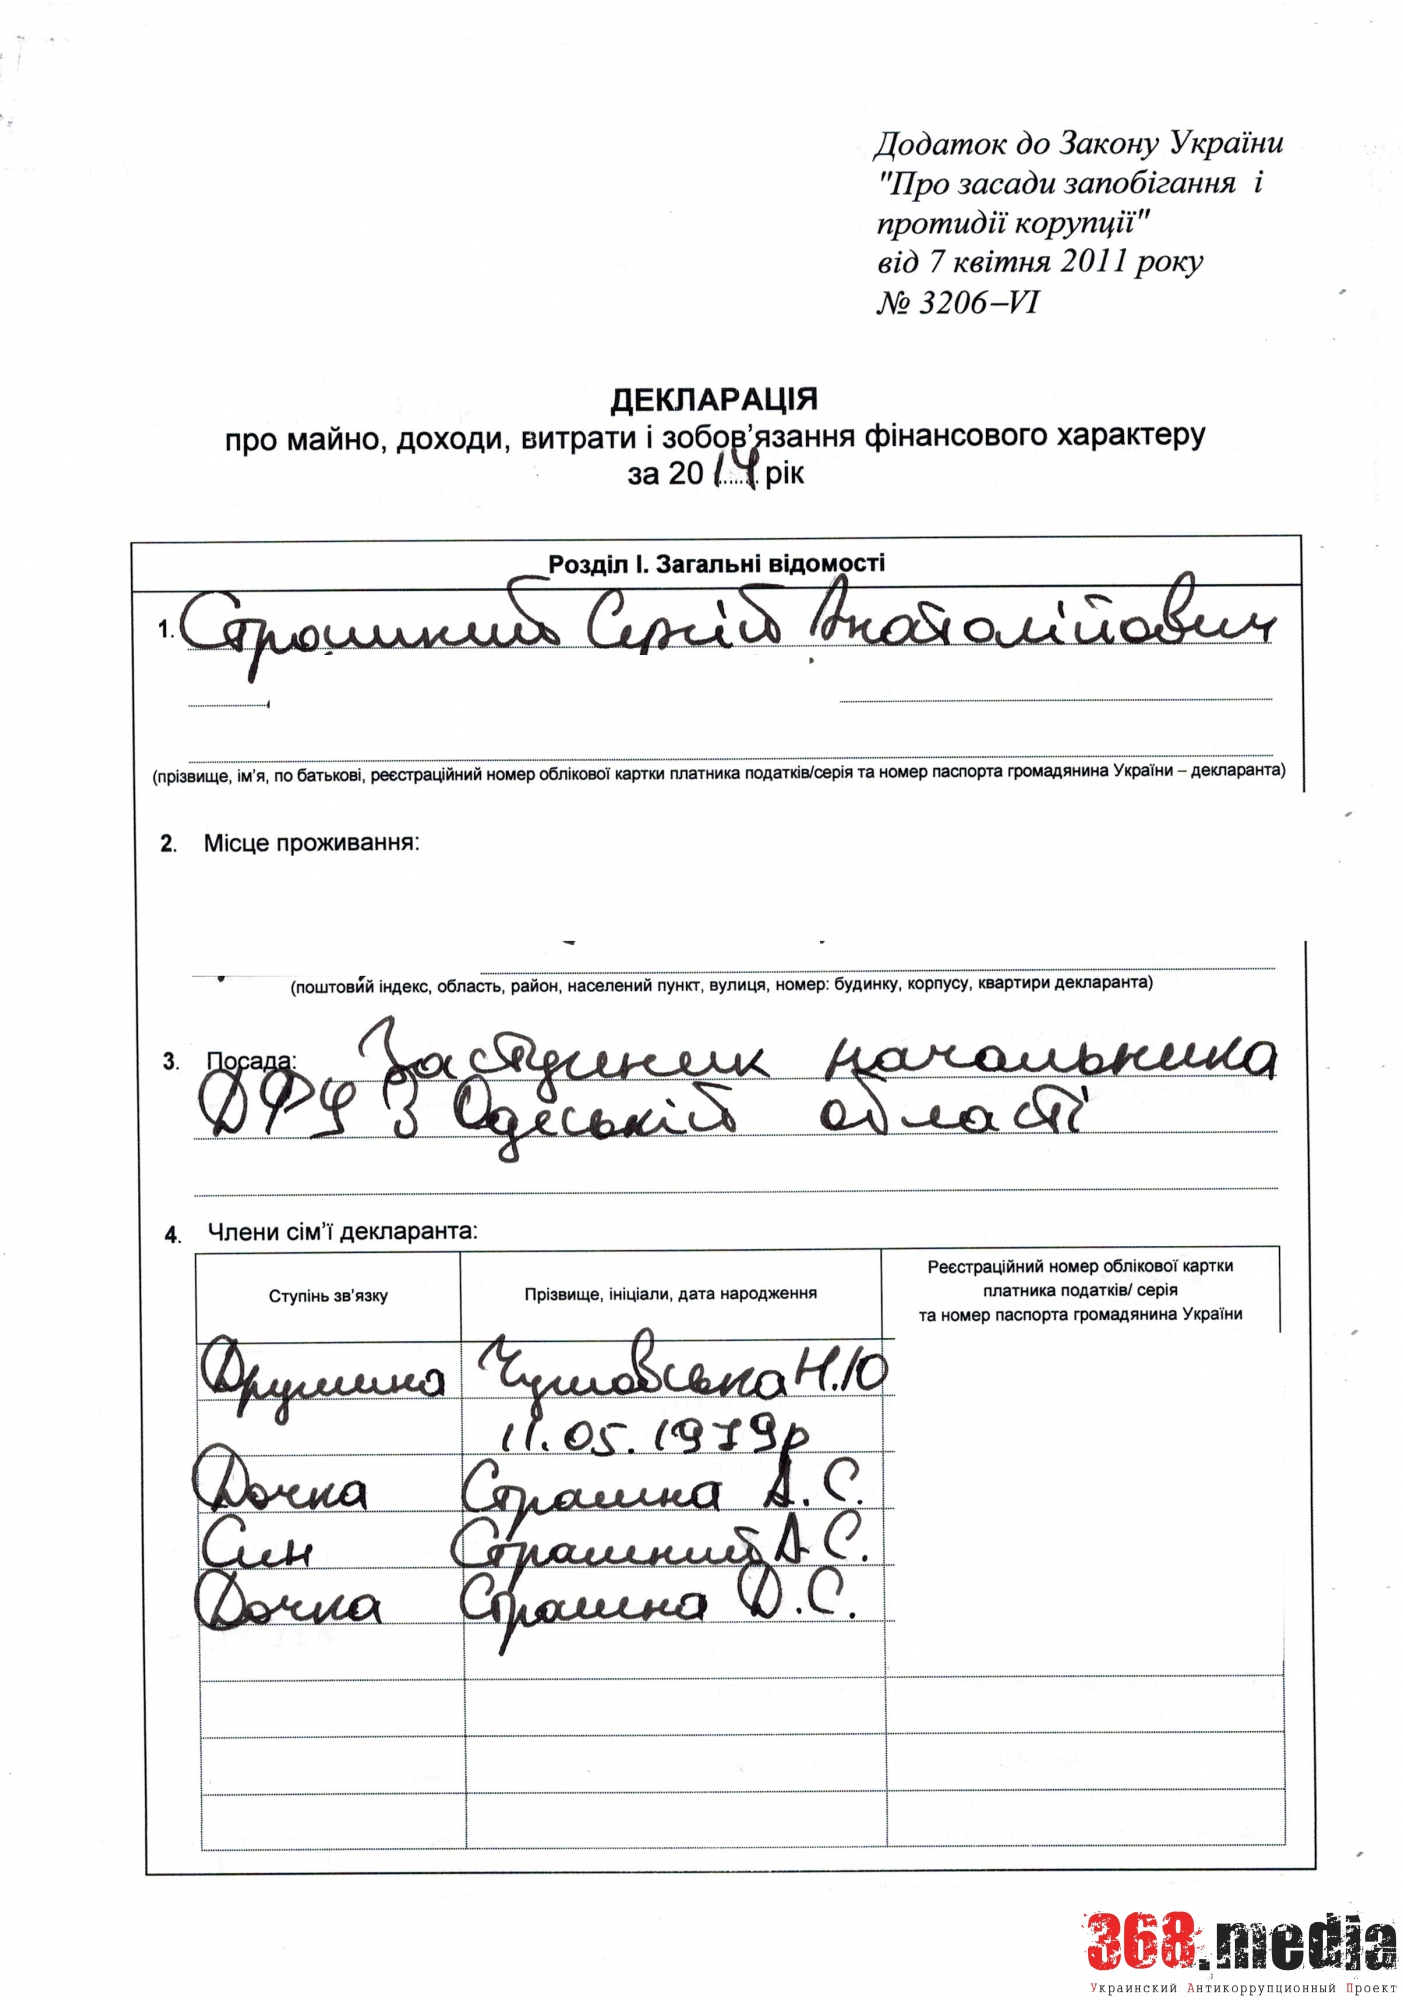 Додаток до Закону України
"Про засади запобігання і
протидії корупції"
від 7 квітня 2011 року
№ 3206–VI
ДЕКЛАРАЦІЯ
про майно, доходи, витрати і зобов’язання фінансового характеру
за 2014 рік
Розділ I. Загальні відомості
1. Страшний Сергій Анатолійович
(прізвище, ім’я, по батькові, реєстраційний номер облікової картки платника податків/серія та номер паспорта громадянина України – декларанта)
2. Місце проживання:
(поштовий індекс, область, район, населений пункт, вулиця, номер: будинку, корпусу, квартири декларанта)
3. Посада: Заступник начальника
ДФУ в Одеській області
4. Члени сім’ї декларанта:
Ступінь зв’язку
Прізвище, ініціали, дата народження
Реєстраційний номер облікової картки
платника податків/ серія
та номер паспорта громадянина України
Дружина Н.Ю
11.05.1979р
Дочка Страшна А.С.
Син Страшний А С.
Дочка Страшна Д.С.
368.media
Украинский Антикоррупционный Проект